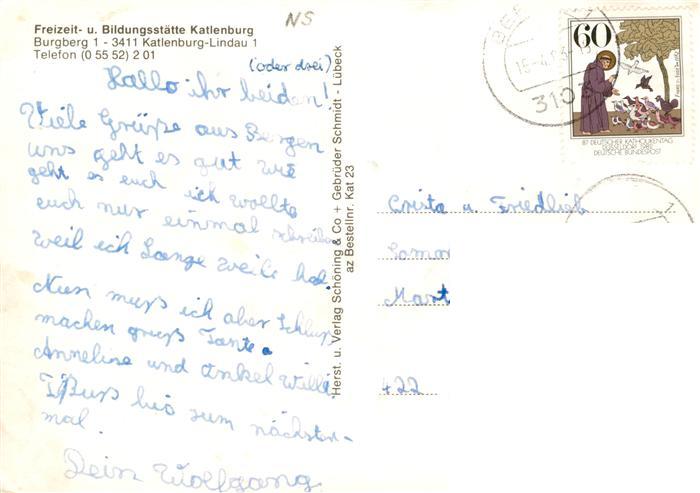 NS
Freizeit- u. Bildungsstätte Katlenburg
Burgberg 1 - 3411 Katlenburg-Lindau 1
Telefon (0 55 52) 2 01
(oder drei)
Hallo ihr beiden!
Viele Grüße aus Bergen
uns geht es gut wie
geht es euch ich wollte
euch nur einmal schreiben
weil ich Lange weile hab.
Nun muß ich aber Schluß
machen grüß Tante
Anneline und Onkel Willi
Bus bis zum nächsten-
mal.
Dein Wolfgang
Herst. u. Verlag Schöning & Co + Gebrüder Schmidt - Lübeck
az Bestellnr. Kat 23
BE
15-4.83
310
60
87. DEUTSCHER KATHOLIKENTAG
DÜSSELDORF 1982
DEUTSCHE BUNDESPOST
Crista u. Friedlieb
Mart
422